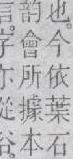 也今依葉石
韻會所據本
言字亦從谷